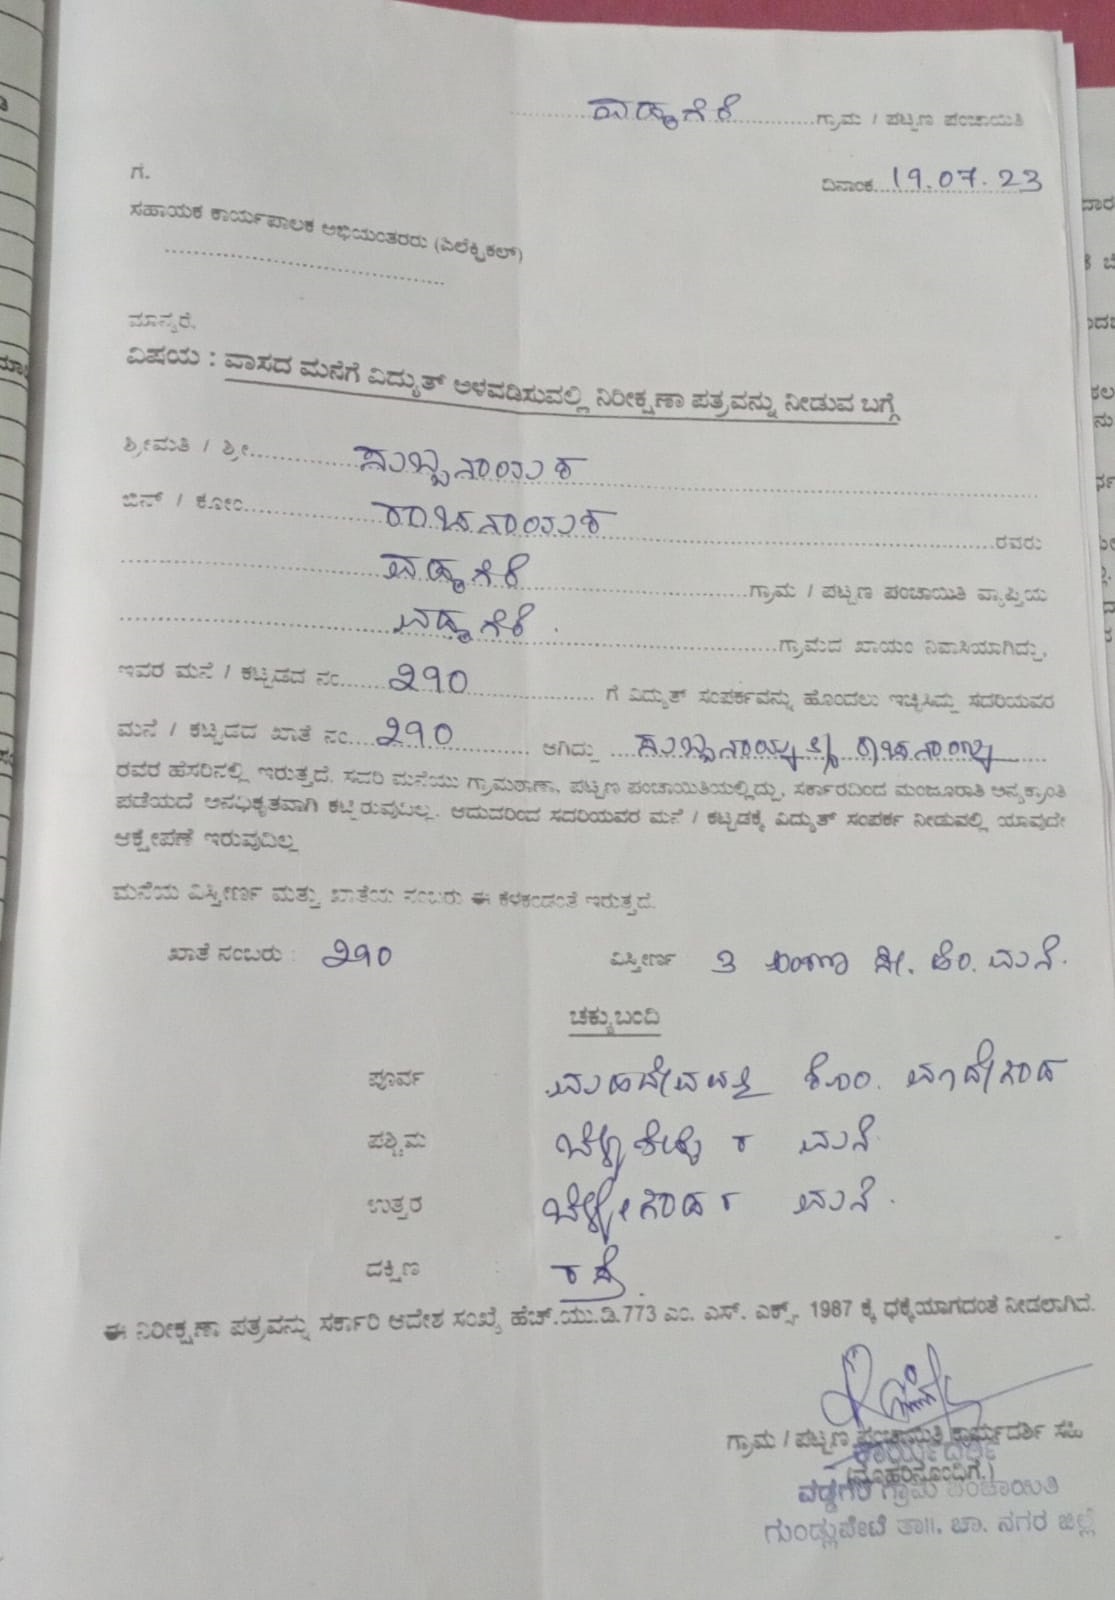 ವಡ್ಡಗೆರೆ ಗ್ರಾಮ / ಪಟ್ಟಣ ಪಂಚಾಯಿತಿ
ದಿನಾಂಕ 19.07.23
ಗೆ.
ಸಹಾಯಕ ಕಾರ್ಯಪಾಲಕ ಅಭಿಯಂತರರು (ಎಲೆಕ್ಟ್ರಿಕಲ್)
ಮಾನ್ಯರೆ.
ವಿಷಯ : ವಾಸದ ಮನೆಗೆ ವಿದ್ಯುತ್ ಅಳವಡಿಸುವಲ್ಲಿ ನಿರೀಕ್ಷಣಾ ಪತ್ರವನ್ನು ನೀಡುವ ಬಗ್ಗೆ
ಶ್ರೀಮತಿ / ಶ್ರೀ ಸುಬ್ಬನಾಯಕ
ಬಿನ್ / ಕೋಂ ರಾಚನಾಯಕ ರವರು
ವಡ್ಡಗೆರೆ ಗ್ರಾಮ / ಪಟ್ಟಣ ಪಂಚಾಯಿತಿ ವ್ಯಾಪ್ತಿಯ
ವಡ್ಡಗೆರೆ. ಗ್ರಾಮದ ಖಾಯಂ ನಿವಾಸಿಯಾಗಿದ್ದು,
ಇವರ ಮನೆ / ಕಟ್ಟಡದ ನಂ 290 ಗೆ ವಿದ್ಯುತ್ ಸಂಪರ್ಕವನ್ನು ಹೊಂದಲು ಇಚ್ಛಿಸಿದ್ದು ಸದರಿಯವರ
ಮನೆ / ಕಟ್ಟಡದ ಖಾತೆ ನಂ 290 ಆಗಿದ್ದು ಸುಬ್ಬನಾಯ್ಕ ರಾಚನಾಯ್ಕ
ರವರ ಹೆಸರಿನಲ್ಲಿ ಇರುತ್ತದೆ. ಸದರಿ ಮನೆಯು ಗ್ರಾಮಠಾಣಾ, ಪಟ್ಟಣ ಪಂಚಾಯಿತಿಯಲ್ಲಿದ್ದು, ಸರ್ಕಾರದಿಂದ ಮಂಜೂರಾತಿ ಅನ್ಯಕ್ರಾಂತಿ
ಪಡೆಯದೆ ಅನಧಿಕೃತವಾಗಿ ಕಟ್ಟಿರುವುದಿಲ್ಲ. ಆದುದರಿಂದ ಸದರಿಯವರ ಮನೆ / ಕಟ್ಟಡಕ್ಕೆ ವಿದ್ಯುತ್ ಸಂಪರ್ಕ ನೀಡುವಲ್ಲಿ ಯಾವುದೇ
ಆಕ್ಷೇಪಣೆ ಇರುವುದಿಲ್ಲ
ಮನೆಯ ವಿಸ್ತೀರ್ಣ ಮತ್ತು ಖಾತೆಯ ನಂಬರು ಈ ಕೆಳಕಂಡಂತೆ ಇರುತ್ತದೆ.
ಖಾತೆ ನಂಬರು : 290 ವಿಸ್ತೀರ್ಣ 3 ಅಂಕಣ ಹೀ. ಹೆಂ. ಮನೆ.
ಚಕ್ಕುಬಂದಿ
ಪೂರ್ವ ಮಹದೇವಮ್ಮ ಕೋಂ. ಮಾದೇಗೌಡ
ಪಶ್ಚಿಮ ಮನೆ
ಉತ್ತರ ಬೆಳ್ಳೇಗೌಡರ ಮನೆ.
ದಕ್ಷಿಣ ರಸ್ತೆ
ಈ ನಿರೀಕ್ಷಣಾ ಪತ್ರವನ್ನು ಸರ್ಕಾರಿ ಆದೇಶ ಸಂಖ್ಯೆ ಹೆಚ್.ಯು.ಡಿ.773 ಎಂ. ಎಸ್. ಎಕ್ಸ್. 1987 ಕ್ಕೆ ಧಕ್ಕೆಯಾಗದಂತೆ ನೀಡಲಾಗಿದೆ.
ಗ್ರಾಮ / ಪಟ್ಟಣ ಪಂಚಾಯಿತಿ ಕಾರ್ಯದರ್ಶಿ ಸಹಿ
ಕಾರ್ಯದರ್ಶಿ
(ಮೊಹರಿನೊಂದಿಗೆ.)
ವಡ್ಡಗೆರೆ ಗ್ರಾಮ ಪಂಚಾಯಿತಿ
ಗುಂಡ್ಲುಪೇಟೆ ತಾ||. ಚಾ. ನಗರ ಜಿಲ್ಲೆ